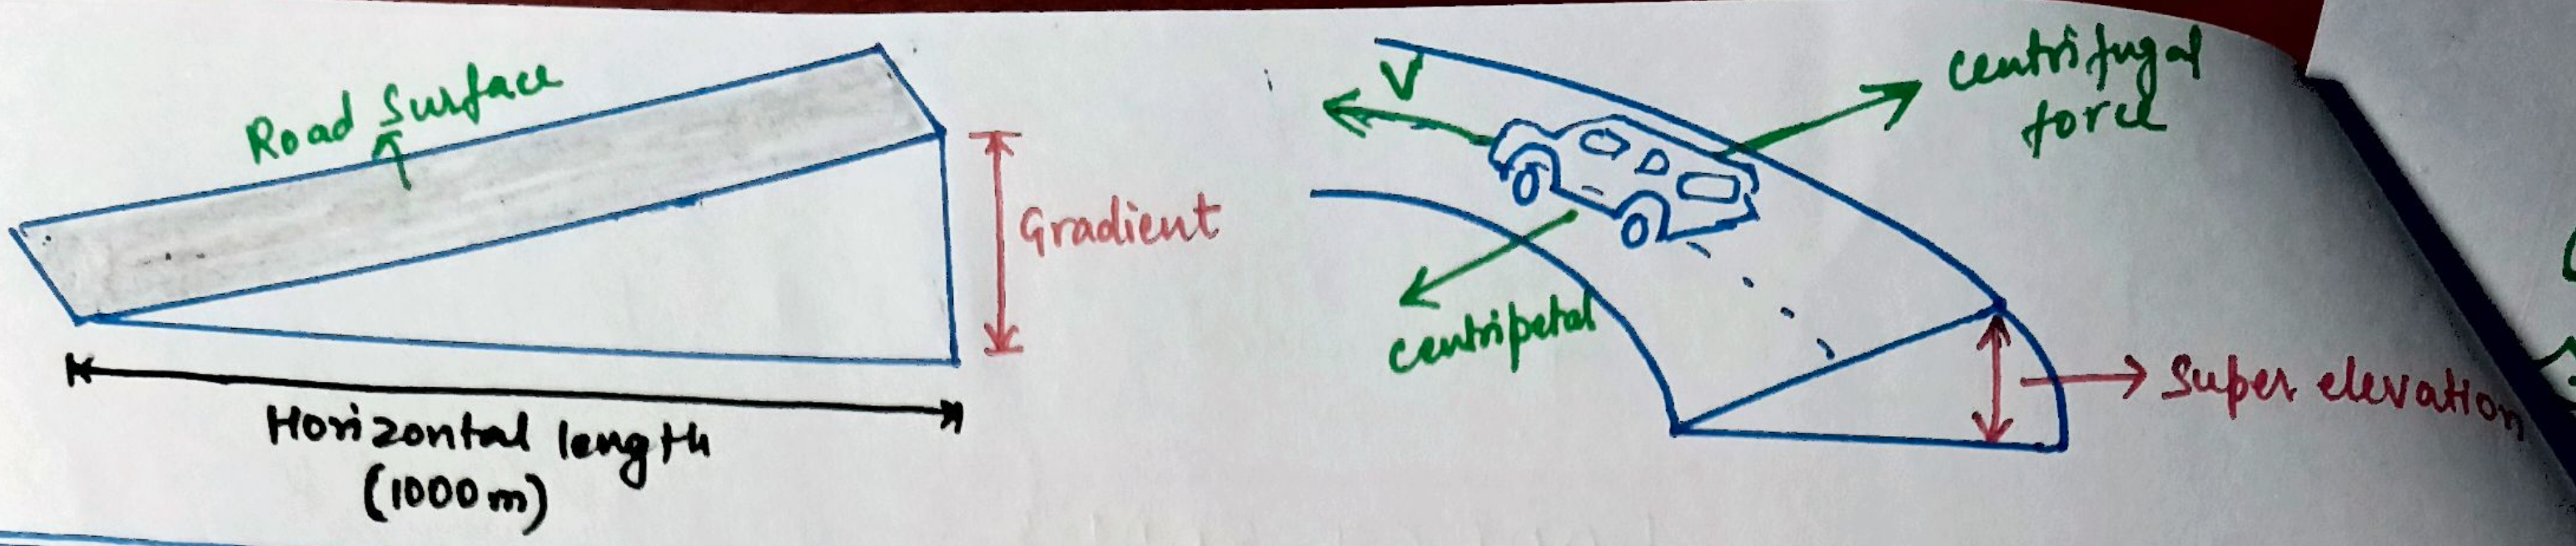 Road Surface
Gradient
Horizontal length
(1000m)
V
centrifugal
force
centripetal
Super elevation